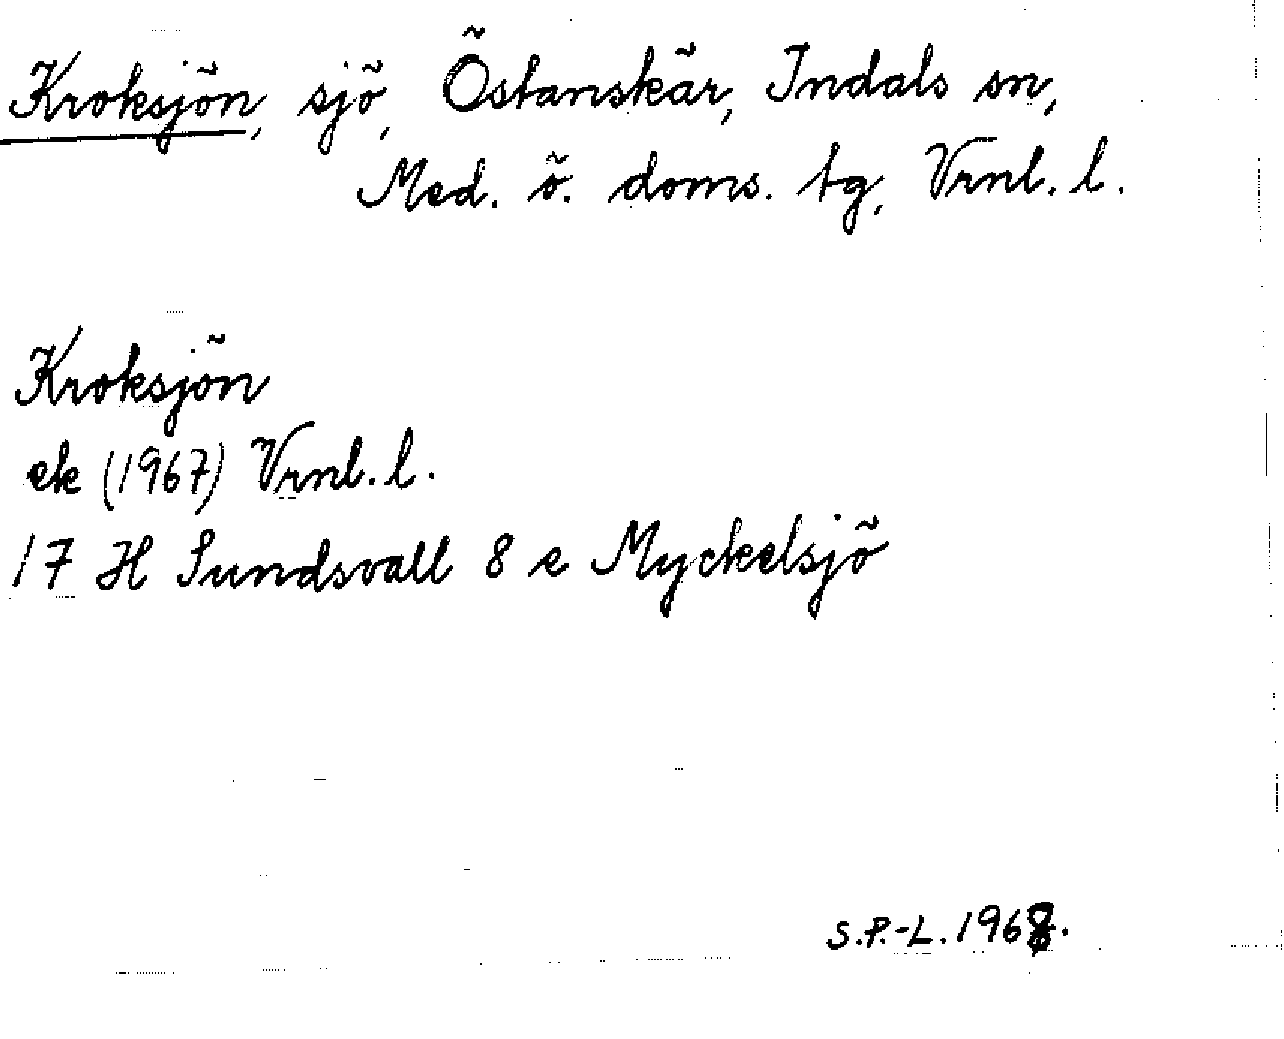 Kroksjön, sjö, Östanskär, Indals sn,
Med. ö. doms. tg, Vrnl. l.
Kroksjön
ek (1967) Vrnl. l.
17 H Sundsvall 8 e Myckelsjö
S.P.-L. 1968.